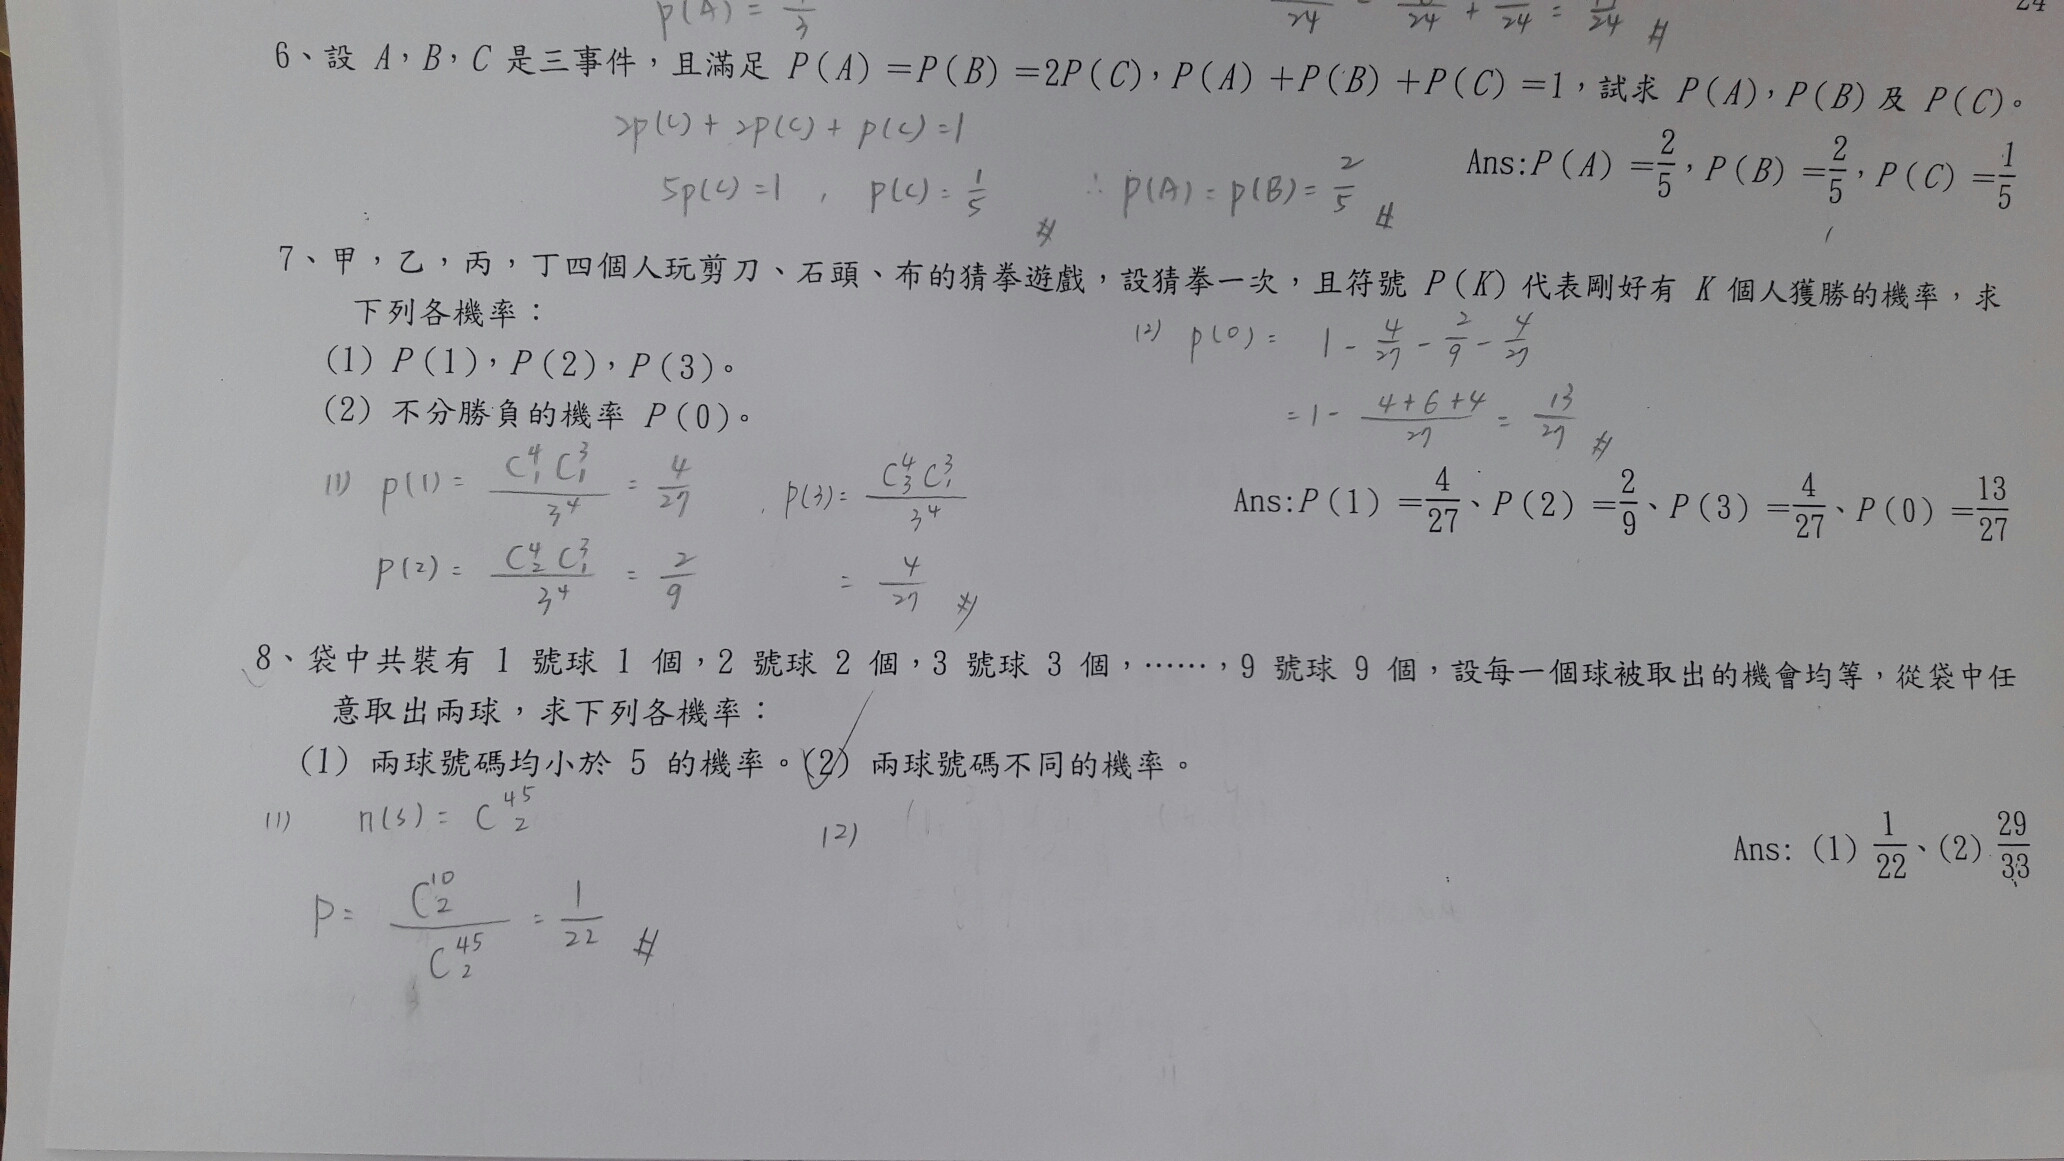 p(A) = 1/3
24 = 24 + 24 = 24 #
24
6、設 A，B，C 是三事件，且滿足 P(A)=P(B)=2P(C)，P(A)+P(B)+P(C)=1，試求 P(A)，P(B) 及 P(C)。
2p(C) + 2p(C) + p(C) = 1
5p(C) = 1 , p(C) = 1/5 # ∴ p(A) = p(B) = 2/5 #
Ans:P(A)=2/5，P(B)=2/5，P(C)=1/5
7、甲，乙，丙，丁四個人玩剪刀、石頭、布的猜拳遊戲，設猜拳一次，且符號 P(K) 代表剛好有 K 個人獲勝的機率，求
下列各機率：
(1) P(1)，P(2)，P(3)。
(2) 不分勝負的機率 P(0)。
(2) p(0) = 1 - 4/27 - 2/9 - 4/27
= 1 - (4+6+4)/27 = 13/27 #
(1) p(1) = C^4_1 C^3_1 / 3^4 = 4/27 , p(3) = C^4_3 C^3_1 / 3^4
p(2) = C^4_2 C^3_1 / 3^4 = 2/9 = 4/27 #
Ans:P(1)=4/27、P(2)=2/9、P(3)=4/27、P(0)=13/27
8、袋中共裝有 1 號球 1 個，2 號球 2 個，3 號球 3 個，……，9 號球 9 個，設每一個球被取出的機會均等，從袋中任
意取出兩球，求下列各機率：
(1) 兩球號碼均小於 5 的機率。(2) 兩球號碼不同的機率。
(1) n(s) = C^45_2
(2)
p = C^10_2 / C^45_2 = 1/22 #
Ans: (1) 1/22、(2) 29/33